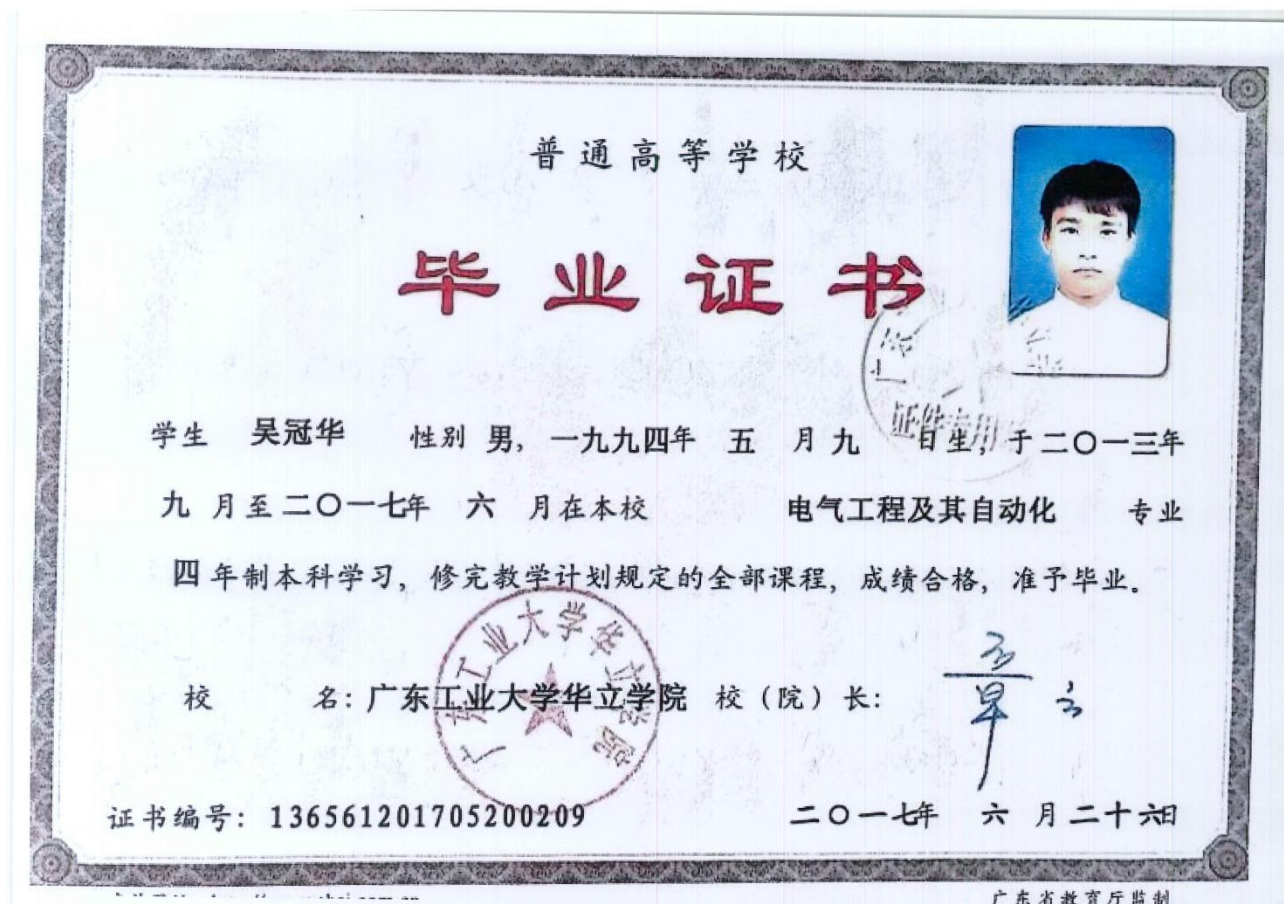 普通高等学校
毕业证书
学生 吴冠华 性别 男，一九九四年 五 月九 日生，于二〇一三年
九 月至二〇一七年 六 月在本校 电气工程及其自动化 专业
四年制本科学习，修完教学计划规定的全部课程，成绩合格，准予毕业。
证件专用
广东工业大学华立学院
校 名：广东工业大学华立学院 校（院）长：
证书编号：136561201705200209 二〇一七年 六 月二十六日
广东省教育厅监制